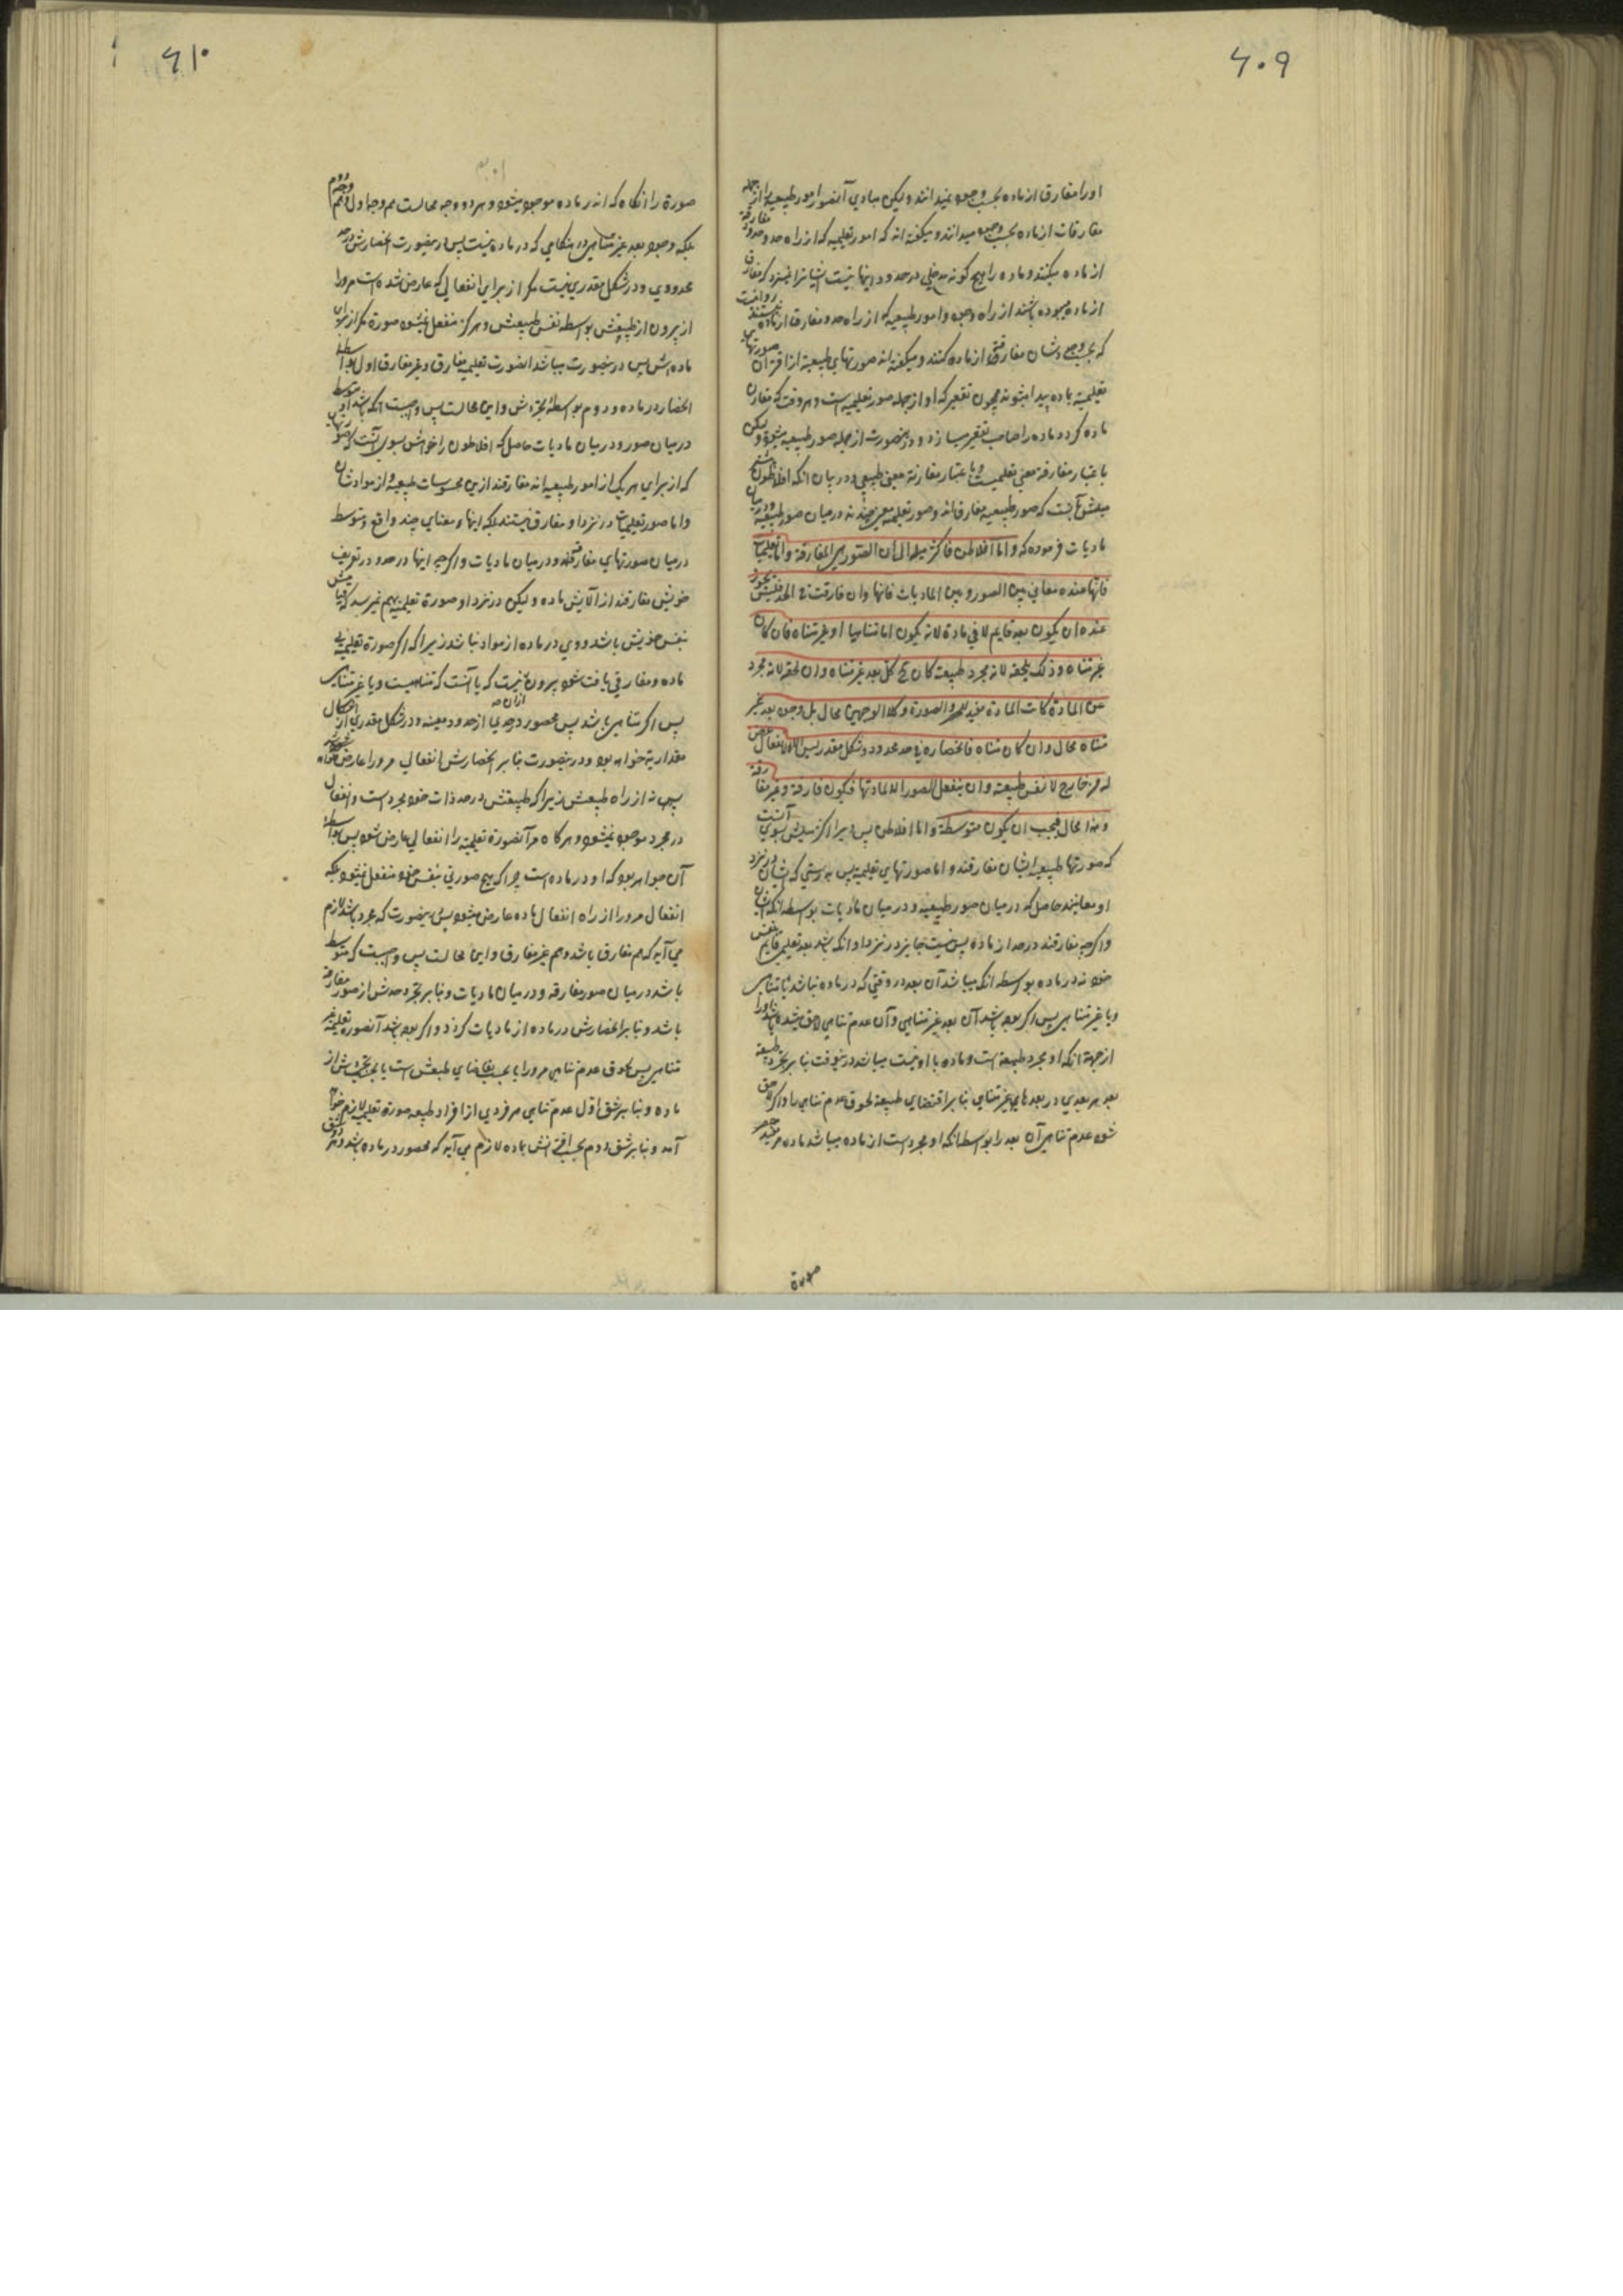 ۶۰۹
او را مفارق از ماده بحسب وجود نمیدانند ولیکن مبادی آنصور امور طبیعیه را از جمله
مفارقات از ماده بحسب وجود میدانند و میگفته اند که امور تعلیمیه که از راه حد و حدود مفارقة
از ماده میکنند و ماده را هیچ گونه مدخلی در حدود اینها نیست
از ماده بوده باشند از راه وجود و امور طبیعیه که از راه حد مفارق از ماده نیستند
که بحسب وجودشان مفارقتی از ماده کنند و میگفته اند صورتهای طبیعیه از اقتران صورتهای
تعلیمیه بماده پیدا میشوند همچون تقعیر که او از جمله صور تعلیمیه است و هر وقت که مقارن
ماده گردد ماده را صاحب تقعیر سازد و درینصورت از جمله صور طبیعیه میشود ولیکن
باعتبار مفارقة معنی تعلیمیست و باعتبار مقارنة معنی طبیعی و در بیان انکه افلاطون
میلش بآنست که صور طبیعیه مفارق اند و صور تعلیمیه معنی چندند در میان صور طبیعیه و در میان
مادیات فرموده که و اما افلاطن فاکثر میله الی ان الصور هی المفارقة و اما التعلیمیات
فانها عنده معانی بین الصور و بین المادیات فانها و ان فارقت فی الحد فلیس یجوز
عنده ان یکون بعد قایم لا فی مادة لانه یکون اما متناهیا او غیر متناه فان کان
غیر متناه و ذلک یلحقه لانه مجرد طبیعت کان ح کل بعد غیر متناه و ان لحقه لانه مجرد
عن المادة کانت المادة مفیدة للحصر و الصورة و کلا الوجهین محال بل وجود بعد غیر
متناه محال و ان کان متناه فانحصاره فی حد محدود و شکل مقدر لیس الا لانفعال عرض
له من خارج لا لنفس طبیعته و لن ینفعل الصور الا لمادتها فیکون مفارقة و غیر مفارقة
و هذا محال فیجب ان یکون متوسطة و اما افلاطن پس اکثر میلش بسوی آنست
که صورتها طبیعیه ایشان مفارقند و اما صورتهای تعلیمیه پس بدرستی که ایشان در نزد
او معانیند حاصل که در میان صور طبیعیه و در میان مادیات بواسطه انکه ایشان
و اگرچه مفارقند در حد از ماده پس نیست جایز در نزد او انکه باشد بعد تعلیمی قایم بنفس
خود نه در ماده بواسطه انکه میباشد آن بعد در وقتی که در ماده نباشد یا متناهی
و یا غیر متناهی پس اگر بوده باشد آن بعد غیر متناهی و آن عدم تناهی لاحق شده باشد او را
از جهة انکه او مجرد طبیعة است و ماده با او نیست میباشد درینوقت بنا بر تجرد طبیعة
بعد هر بعدی در بعدهای غیر متناهی بنا بر اقتضای طبیعة لحوق عدم تناهی را و اگر لاحق
شود عدم تناهی آن بعد را بواسطه انکه او مجرد است از ماده میباشد ماده مر مفید حصر
صورة
۶۱۰
صورة را انگاه که اندر ماده موجود میشود و هر دو وجه محالست هم وجه اول و هم وجه دوم
بلکه وجود بعد غیر متناهی در هنگامی که در ماده نیست پس درینصورت انحصارش در حد
محدودی و در شکل مقدری نیست مگر از برای انفعالی که عارض شده است مر او را
از بیرون از طبیعتش نه بواسطه نفس طبیعتش و هرگز منفعل نمیشود صورة مگر از برای
ماده اش پس درینصورت میباشد انصورت تعلیمیه مفارق و غیر مفارق اول بواسطه
انحصار در ماده و دوم بواسطه تجردش و این محالست پس واجبست انکه باشد او متوسط
در میان صور و در میان مادیات حاصل که افلاطون را خواهش بسوی آنست که صورتهایی
که از برای هر یک از امور طبیعیه اند مفارقند ازین محسوسات طبیعیه و از موادشان
و اما صور تعلیمیات در نزد او مفارق نیستند بلکه اینها معنای چند واقع و متوسط
در میان صورتهای مفارقند و در میان مادیات و اگرچه اینها در حدود در تعریف
خویش مفارقند از آلایش ماده و لیکن در نزد او صورة تعلیمیه بهم نمیرسد که قیامش
بنفس خویش باشد و وی در ماده از مواد نباشد زیرا که اگر صورة تعلیمیه بی
ماده و مفارقی یافت شود بیرون نیست که یا آنست که متناهیست و یا غیر متناهی
پس اگر متناهی باشد پس محصور در حدی از حدود معینه و در شکل مقدری از اشکال
مقداریه خواهد بود و درینصورت بنابر انحصارش انفعالی مر او را عارض خواهد شد
پس نه از راه طبیعتش زیرا که طبیعتش در حد ذات خود مجرد است و انفعال
در مجرد موجود نمیشود و هرگاه مر آنصورة تعلیمیه را انفعالی عارض شود پس بواسطه
آن خواهد بود که او در ماده است چرا که هیچ صورتی بنفس خود منفعل نمیشود بلکه
انفعال مر او را از راه انفعال ماده عارض میشود پس درینصورت که مجرد باشد لازم
می آید که هم مفارق باشد و هم غیر مفارق و این محالست پس واجبست که متوسط
باشد در میان صور مفارقه و در میان مادیات و بنابر تجرد حدش از صور مفارقة
باشد و بنابر انحصارش در ماده از مادیات گردد و اگر بوده باشد آنصورة تعلیمیه غیر
متناهی پس لحوق عدم تناهی مر او را یا بحسب تقاضای طبعش است یا بحسب تجردش از
ماده و بنابر شق اول عدم تناهی هر فردی از افراد طبیعه صورة تعلیمیه لازم خواهد
آمد و بنابر شق دوم بحسب اقترانش بماده لازم می آید که محصور در ماده باشد و هر دو شق